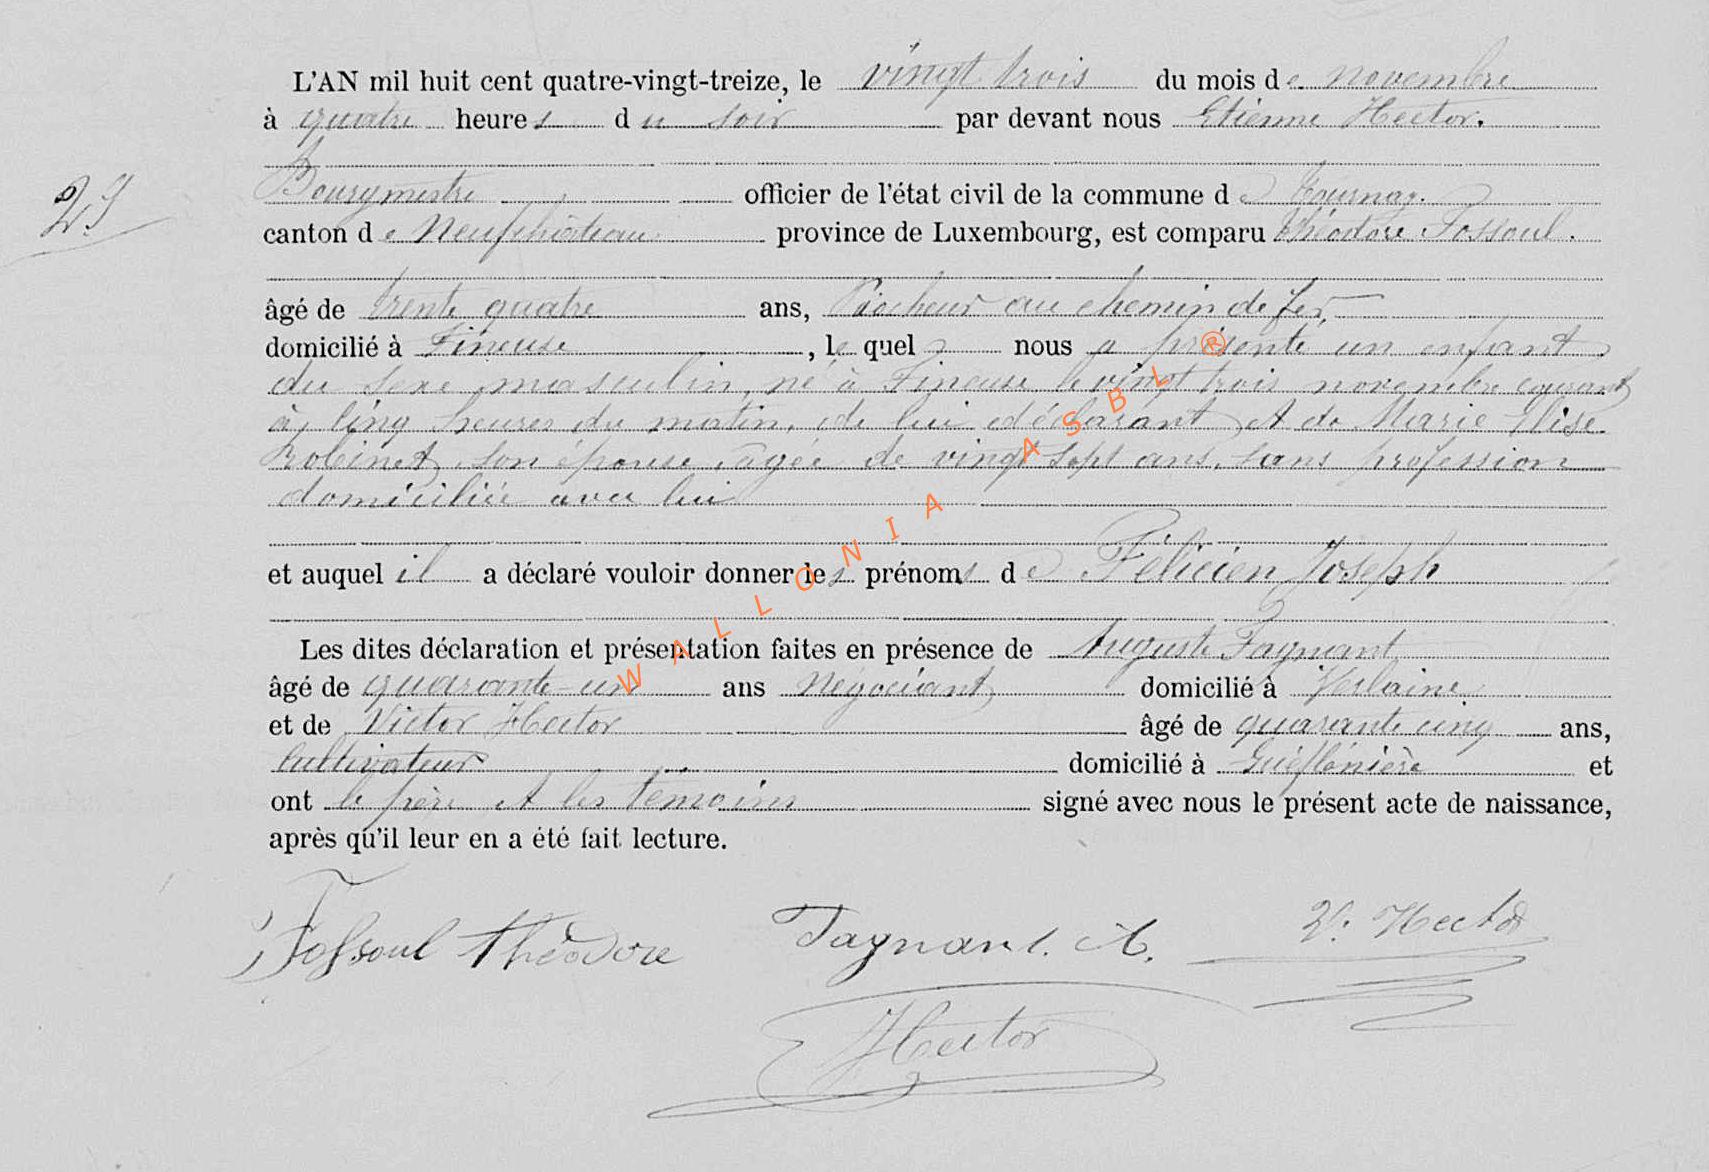 L'AN mil huit cent quatre-vingt-treize, le vingt trois du mois de novembre
à quatre heures du soir par devant nous Etienne Hector.
Bourgmestre officier de l'état civil de la commune de Tournay.
canton de Neufchâteau province de Luxembourg, est comparu Théodore Fossoul.
âgé de trente quatre ans, Piocheur au chemin de fer,
domicilié à Fineuse, le quel nous a présenté un enfant
du sexe masculin, né à Fineuse le vingt trois novembre courant
à cinq heures du matin, de lui déclarant et de Marie Elise
Robinet, son épouse, âgée de vingt sept ans, sans profession
domiciliée avec lui
et auquel il a déclaré vouloir donner les prénoms de Félicien Joseph
Les dites déclaration et présentation faites en présence de Auguste Fagnant
âgé de quarante-un ans Négociant domicilié à Verlaine
et de Victor Hector âgé de quarante cinq ans,
Cultivateur domicilié à et
ont le père et les témoins signé avec nous le présent acte de naissance,
après qu'il leur en a été fait lecture.
Fossoul Théodore Fagnant. A. V. Hector
Hector
WALLONIA ASBL ®